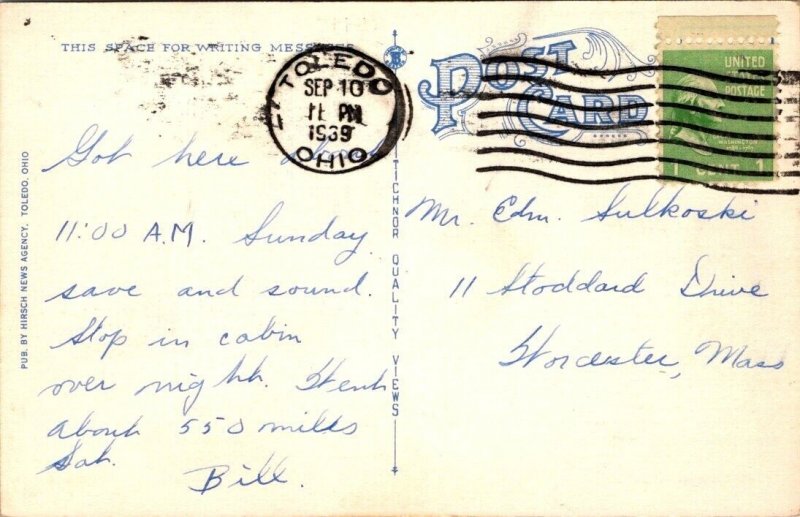 THIS SPACE FOR WRITING MESSAGES
POST CARD
TOLEDO
SEP 10
11 PM
1939
OHIO
UNITED
STATES
POSTAGE
WASHINGTON
1 CENT 1
Got here about
11:00 A.M. Sunday
save and sound.
Stop in cabin
over night. Went
about 550 miles
Sat.
Bill.
Mr. Edm. Sulkoski
11 Stoddard Drive
Worcester, Mass
PUB. BY HIRSCH NEWS AGENCY, TOLEDO, OHIO
TICHNOR QUALITY VIEWS